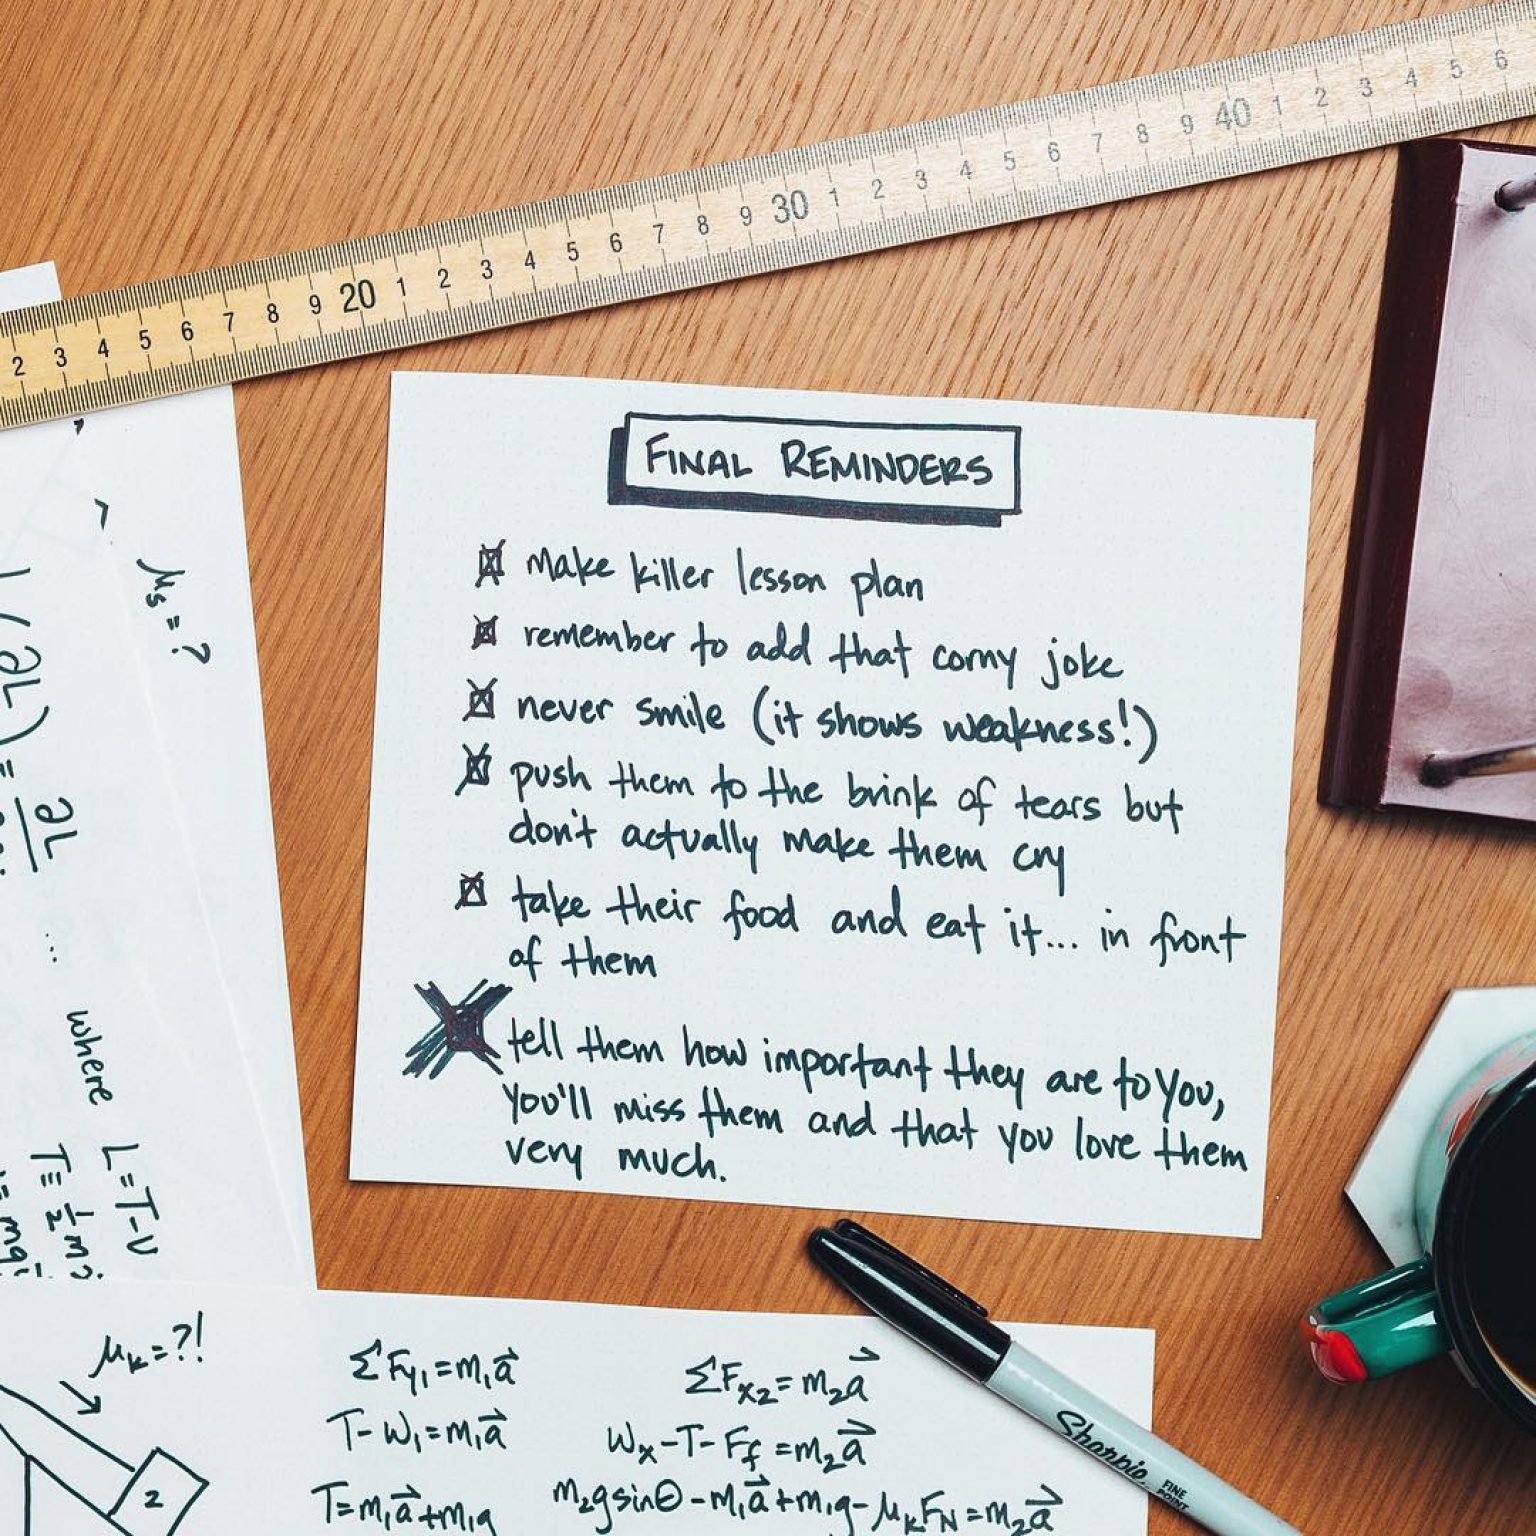 2 3 4 5 6 7 8 9 20 1 2 3 4 5 6 7 8 9 30 1 2 3 4 5 6 7 8 9 40 1 2 3 4 5 6
FINAL REMINDERS
make killer lesson plan
remember to add that corny joke
never smile (it shows weakness!)
push them to the brink of tears but
don't actually make them cry
take their food and eat it... in front
of them
tell them how important they are to you,
you'll miss them and that you love them
very much.
μs = ?
∂L
...
where
L = T - U
μk = ?!
2
ΣFy1 = m1a⃗
T - W1 = m1a⃗
T = m1a⃗ + m1g
ΣFx2 = m2a⃗
Wx - T - Ff = m2a⃗
m2gsinθ - m1a⃗ + m1g - μkFN = m2a⃗
Sharpie.
FINE
POINT